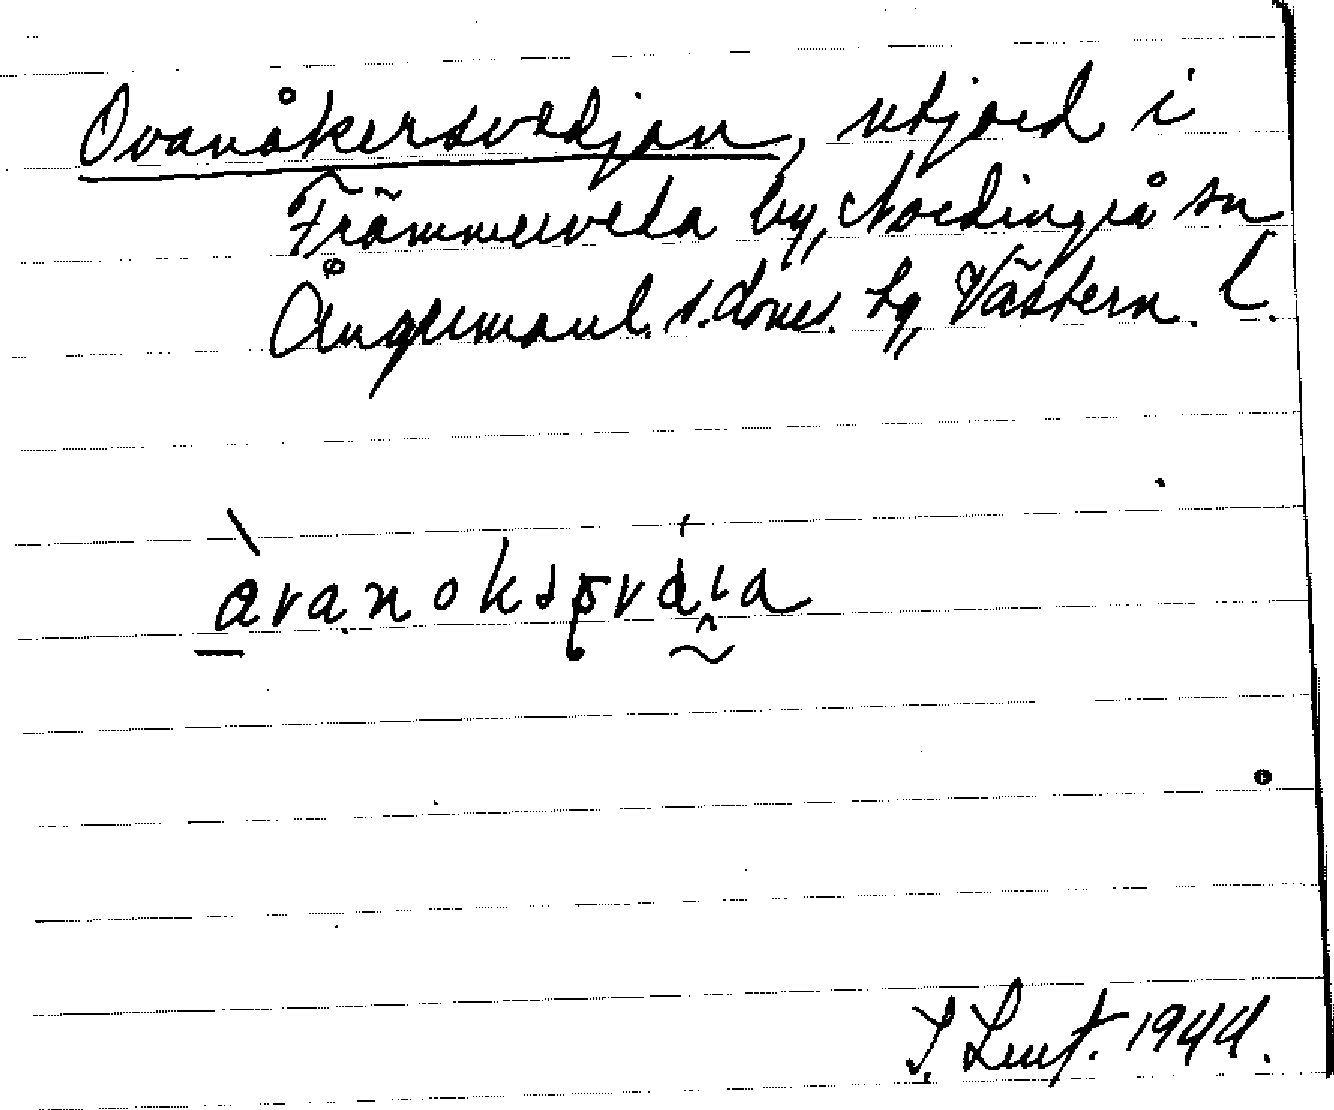 Ovanåkersvedjan, utjord i
Främmerveda by, Nordingrå sn
Ångermanl. s. doms. hg, Västern. l.
avanoksrvdia
1944.